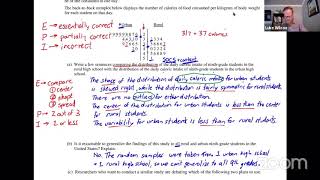 The back-to-back stemplot below displays the number of calories of food consumed per kilogram of body weight
for each student on that day.
E → essentially correct
P → partially correct
I → incorrect
Urban
Rural
3|7 = 37 calories
(a) Write a few sentences comparing the distribution of the daily caloric intake of ninth-grade students in the
rural high school with the distribution of the daily caloric intake of ninth-grade students in the urban high
school.
SOCS + context
E → compare
① center
② shape
③ spread
P → 2 out of 3
I → 2 or less
The shape of the distribution of daily caloric intake for urban students
is skewed right while the distribution is fairly symmetric for rural students.
There are no outliers for either distribution.
The center of the distribution for urban students is less than the center
for rural students.
The variability for urban students is less than for rural students.
(b) Is it reasonable to generalize the findings of this study to all rural and urban ninth-grade students in the
United States? Explain.
No. The random samples were taken from 1 urban high school
+ 1 rural high school, so we can't generalize to all 9th graders.
(c) Researchers who want to conduct a similar study are debating which of the following two plans to use.
Luke Wilcox
zoom